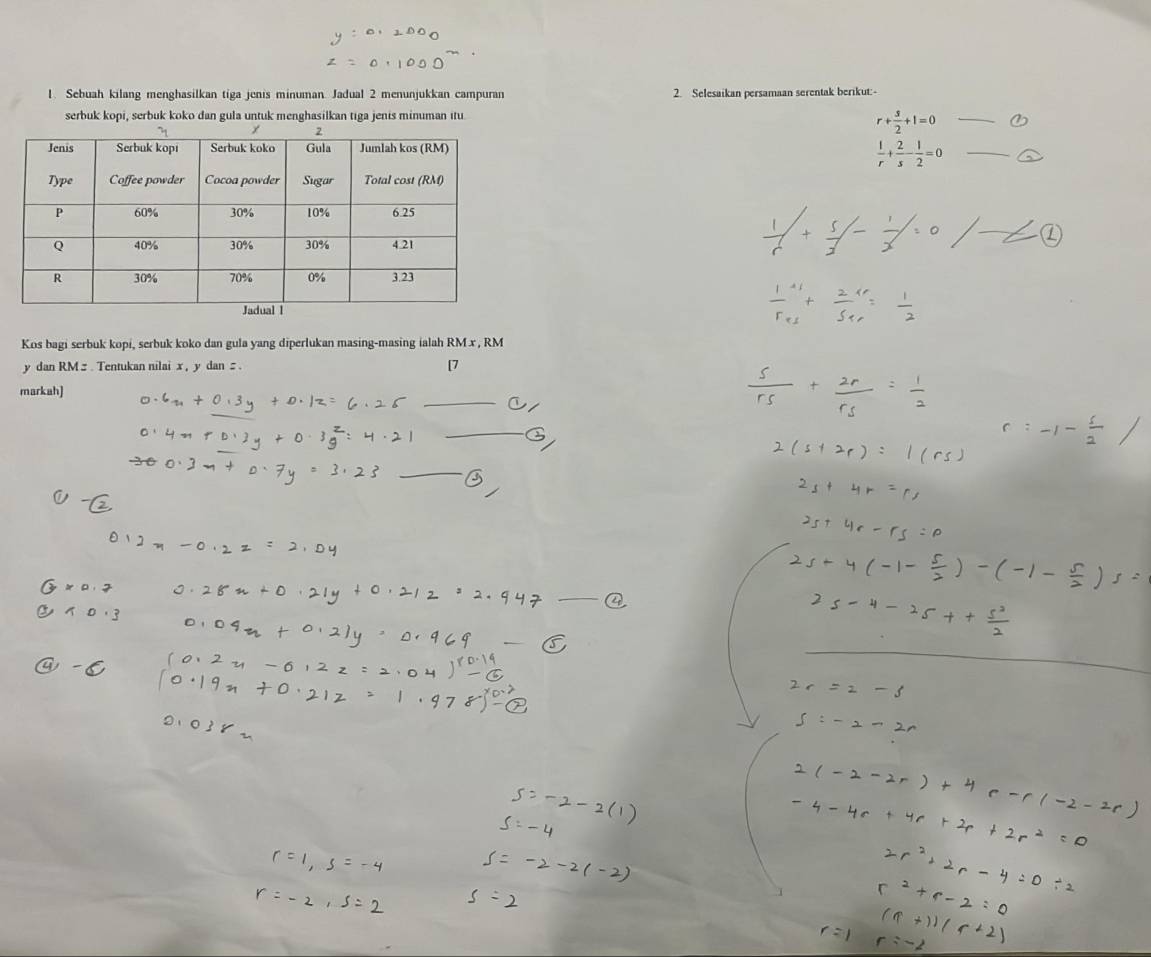 y = 0.2000
z = 0.1000
1. Sebuah kilang menghasilkan tiga jenis minuman. Jadual 2 menunjukkan campuran
serbuk kopi, serbuk koko dan gula untuk menghasilkan tiga jenis minuman itu.
Jenis Serbuk kopi Serbuk koko Gula Jumlah kos (RM)
Type Coffee powder Cocoa powder Sugar Total cost (RM)
P 60% 30% 10% 6.25
Q 40% 30% 30% 4.21
R 30% 70% 0% 3.23
Jadual 1
Kos bagi serbuk kopi, serbuk koko dan gula yang diperlukan masing-masing ialah RM x, RM
y dan RM z. Tentukan nilai x, y dan z. [7
markah]
0.6x + 0.3y + 0.1z = 6.25 — ①
0.4x + 0.3y + 0.3z = 4.21 —
0.3x + 0.7y = 3.23 — ③
① - ②
0.2x - 0.2z = 2.04
② × 0.7 0.28x + 0.21y + 0.21z = 2.947 — ④
③ × 0.3 0.09x + 0.21y = 0.969 — ⑤
④ - ⑤ (0.2x - 0.2z = 2.04) × 0.19 — ⑥
(0.19x + 0.21z = 1.978) × 0.2 — ⑦
0.038x
s = -2 - 2(1)
s = -4
r = 1, s = -4
s = -2 - 2(-2)
r = -2, s = 2
s = 2
2. Selesaikan persamaan serentak berikut:-
r + s/2 + 1 = 0 — ①
1/r + 2/s - 1/2 = 0 — ②
1/r + s/2 - 1/2 = 0 — ①
1×s/r×s + 2×r/s×r = 1/2
s/rs + 2r/rs = 1/2
r = -1 - s/2
2(s + 2r) = 1(rs)
2s + 4r = rs
2s + 4r - rs = 0
2s + 4(-1 - s/2) - (-1 - s/2)s =
2s - 4 - 2s + + s²/2
2r = 2 - s
s = -2 - 2r
2(-2 - 2r) + 4r - r(-2 - 2r)
-4 - 4r + 4r + 2r + 2r² = 0
2r² + 2r - 4 = 0 ÷ 2
r² + r - 2 = 0
(r + 1)(r + 2)
r = 1 r = -2